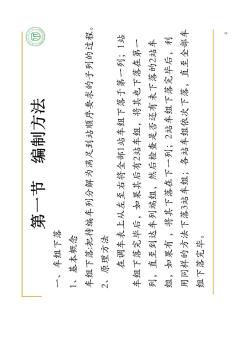 第一节　编制方法
一、车组下落
1、基本概念
车组下落:把待编车列分解为满足到站顺序要求的子列的过程。
2、原理方法
在调车表上从左至右将全部1站车组下落于第一列；1站
车组下落完毕后，如果其后有2站车组，将其也下落在第一
列，直至到达车列端组，然后检查是否还有未下落的2站车
组，如果有，将其下落在下一列；2站车组下落完毕后，利
用同样的方法下落3站车组；各站车组依次下落，直至全部车
组下落完毕。